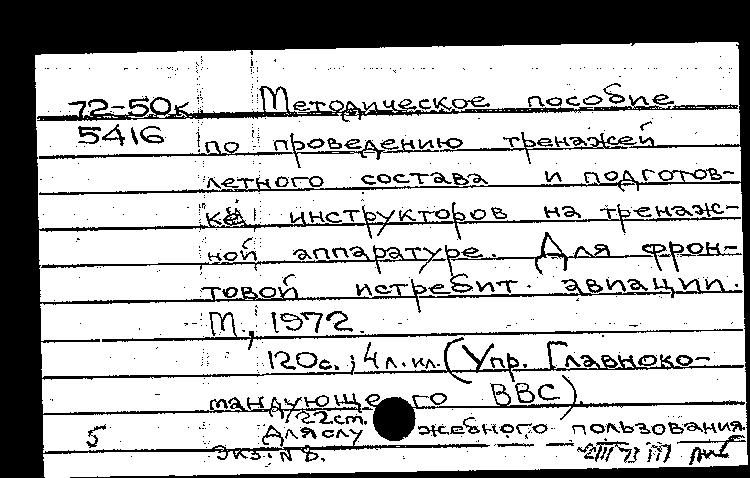 72-50к Методическое пособие
5416 по проведению тренажей
летного состава и подготов-
ке инструкторов на тренаж-
ной аппаратуре. Для фрон-
товой истребит. авиации.
М., 1972.
120с.; 4 л.ил. (Упр. Главноко-
мандующего ВВС).
22 см.
5 Для служебного пользования
Экз. N 8.